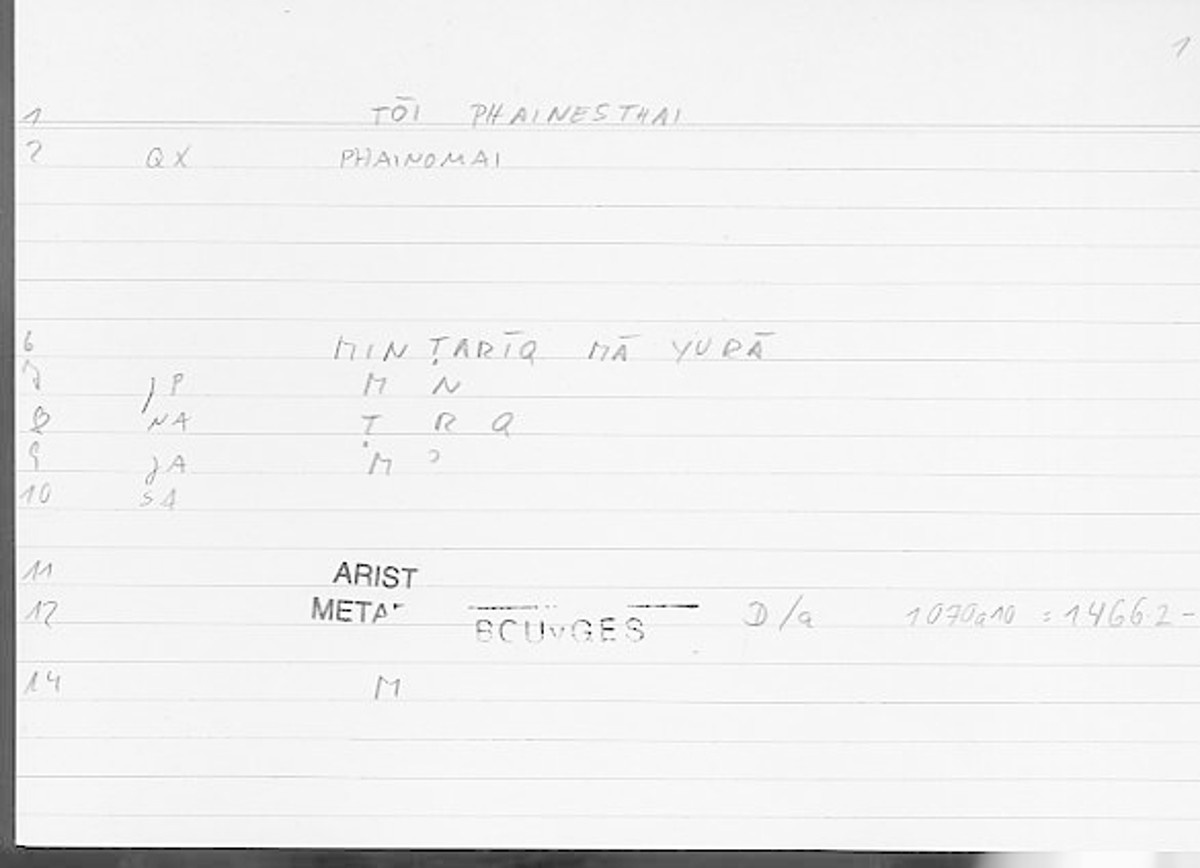 1
1 TŌI PHAINESTHAI
2 QX PHAINOMAI
6 MIN ṬARĪQ MĀ YURĀ
7 jP M N
8 NA Ṭ R Q
9 jA M ʾ
10 SA
11 ARIST
12 META BOUYGES D/a 1070a10 = 1466.2-
14 M